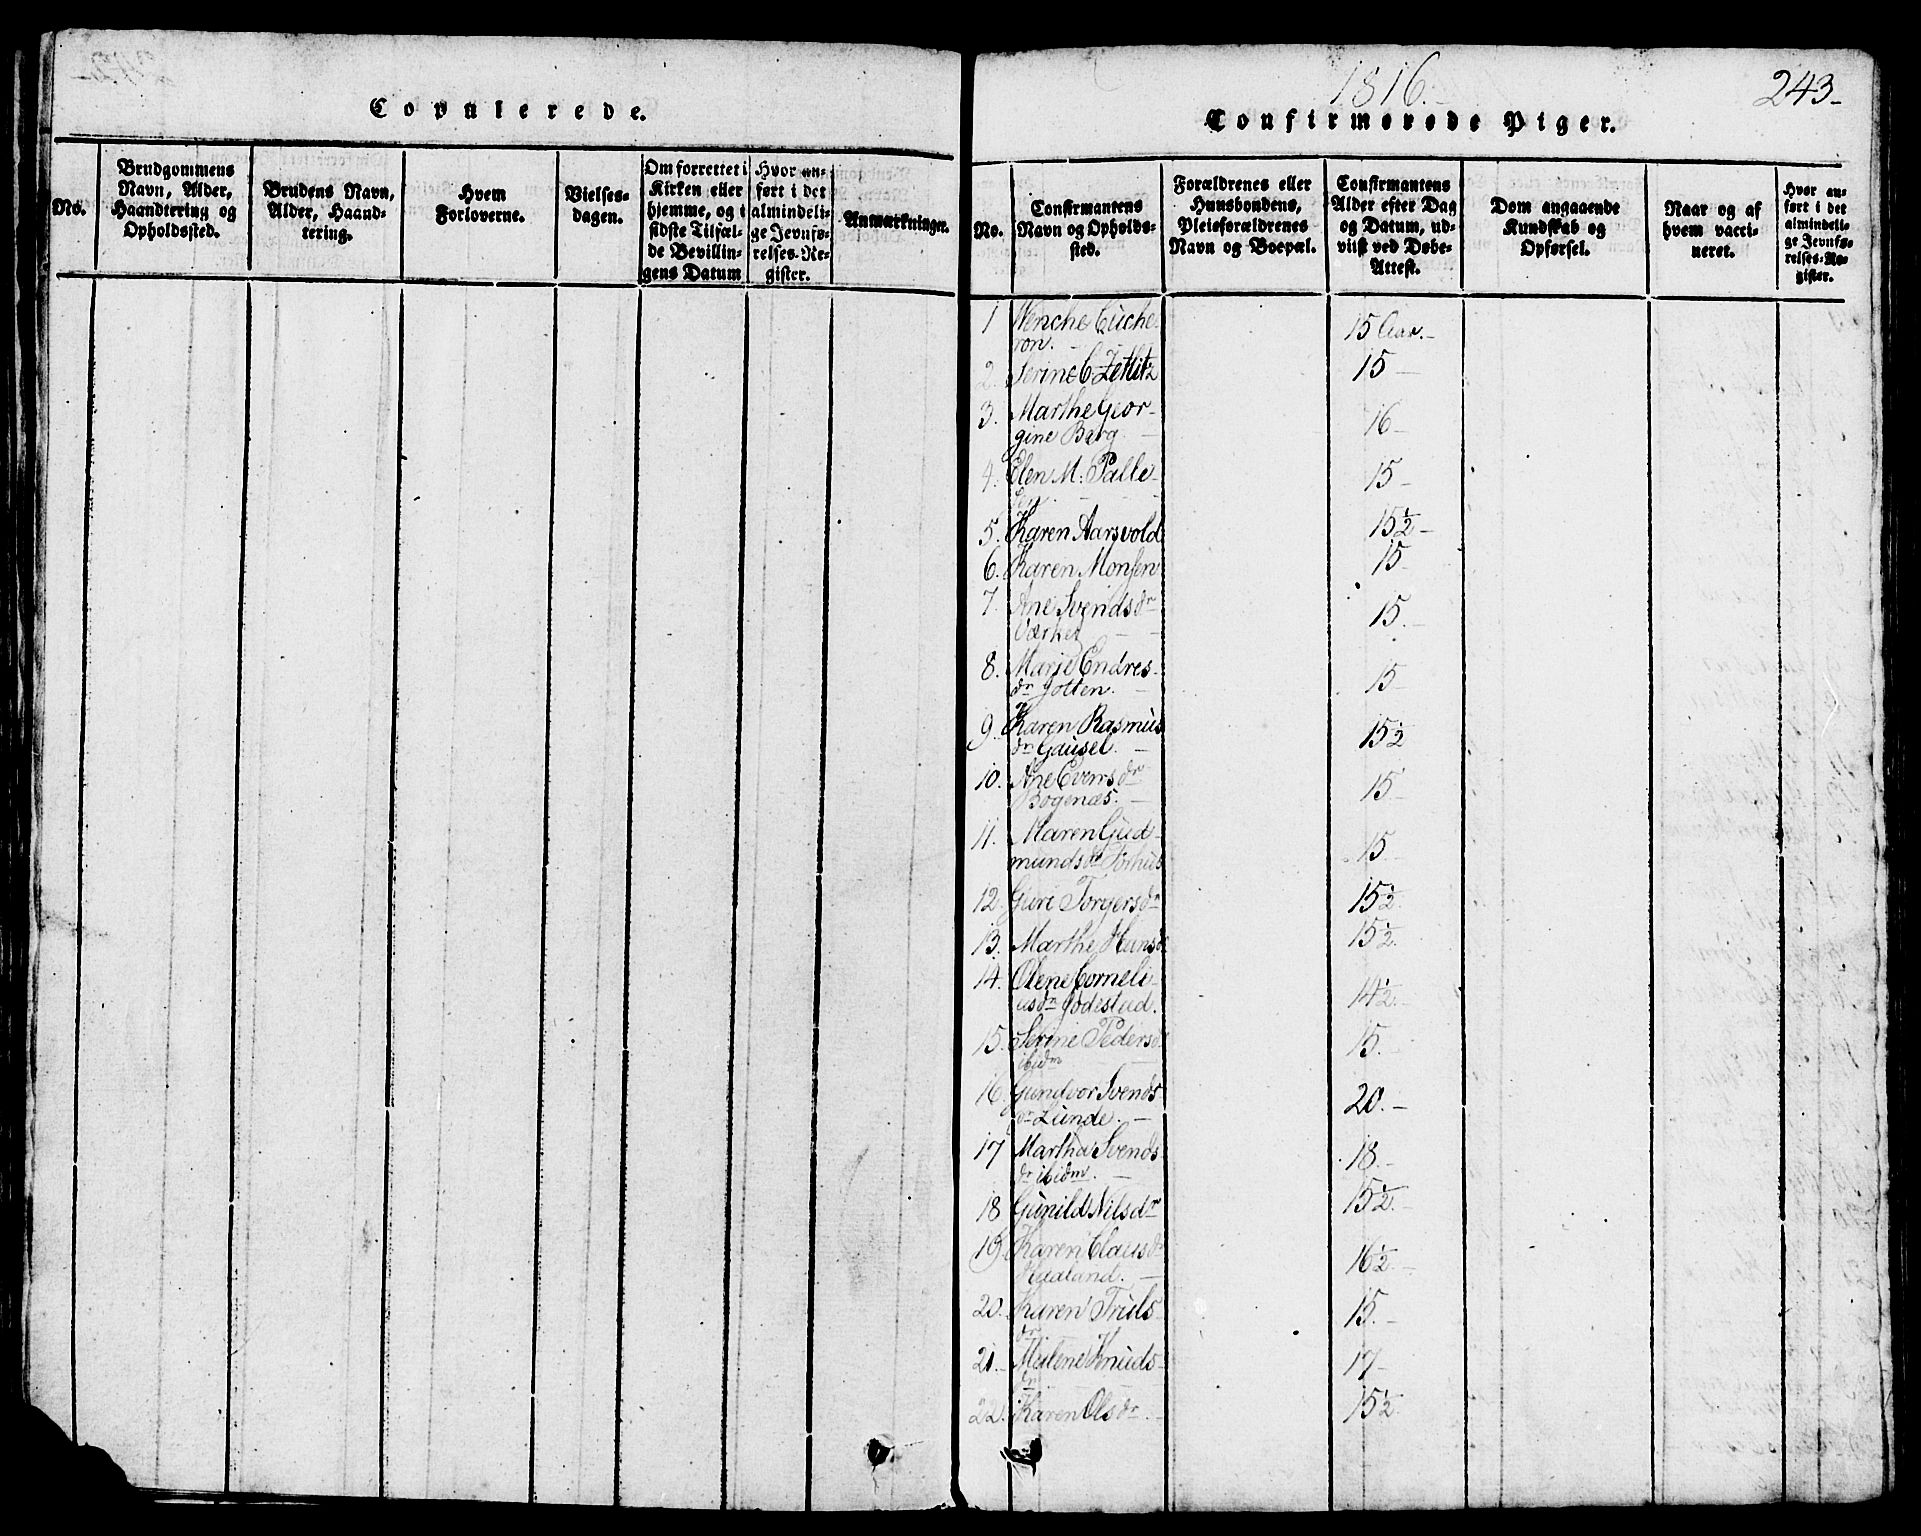 Copulerede.
No.
Brudgommens
Navn, Alder,
Haandtering og
Opholdssted.
Brudens Navn,
Alder, Haand-
tering.
Hvem
Forloverne.
Vielses-
dagen.
Om forrettet i
Kirken eller
hjemme, og i
sidste Tilfæl-
de Bevillin-
gens Datum
Hvor an-
ført i det
almindeli-
ge Jevnfø-
relses-Re-
gister.
Anmærkninger.
1816.
243-
Confirmerede Piger.
No.
Confirmantens
Navn og Opholds-
sted.
Forældrenes eller
Huusbondens,
Pleieforældrenes
Navn og Boepæl.
Confirmantens
Alder efter Dag
og Datum, ud-
viist ved Døbe-
Attest.
Dom angaaende
Kundskab og
Opførsel.
Naar og af
hvem vacci-
neret.
Hvor an-
ført i det
almindeli-
ge Jevnfø-
relses-Re-
gister.
1 Wenche Eüche- 15 Aar.-
ron.
2. Serine C. Zetlitz 15 -
3. Marthe Geor- 16 -
gine Barg.
4. Elen M: Palle- 15 -
sen.
5. Karen Aarsvold 15½ -
6. Karen Monsen 15 -
7. Ane Svendsdr 15. -
8. Marie Endres- 15 -
dr Jotten.
9. Karen Rasmüs 15½
dr Gaüsel.
10. Ane Evensdr 15 -
Bogenæs.
11. Maren Gud- 15
mundsdr
12. Guri Torgersdr 15½
13. Marthe Hansd 15½.
14. Olene Corneli- 14½. -
usdr Jodestad.
15. Serine Pedersd 15. -
ibidm
16. Gundvor Svends 20. -
dr Lünde.
17 Martha Svends 18. -
dr ibidm.
18 Günild Nilsdr 15½. -
19. Karen Clausdr 16½ -
Haaland.
20. Karen Trüls- 15. -
dr
21. Malene Knüds- 17 -
dr
22. Karen Olsdr. 15½